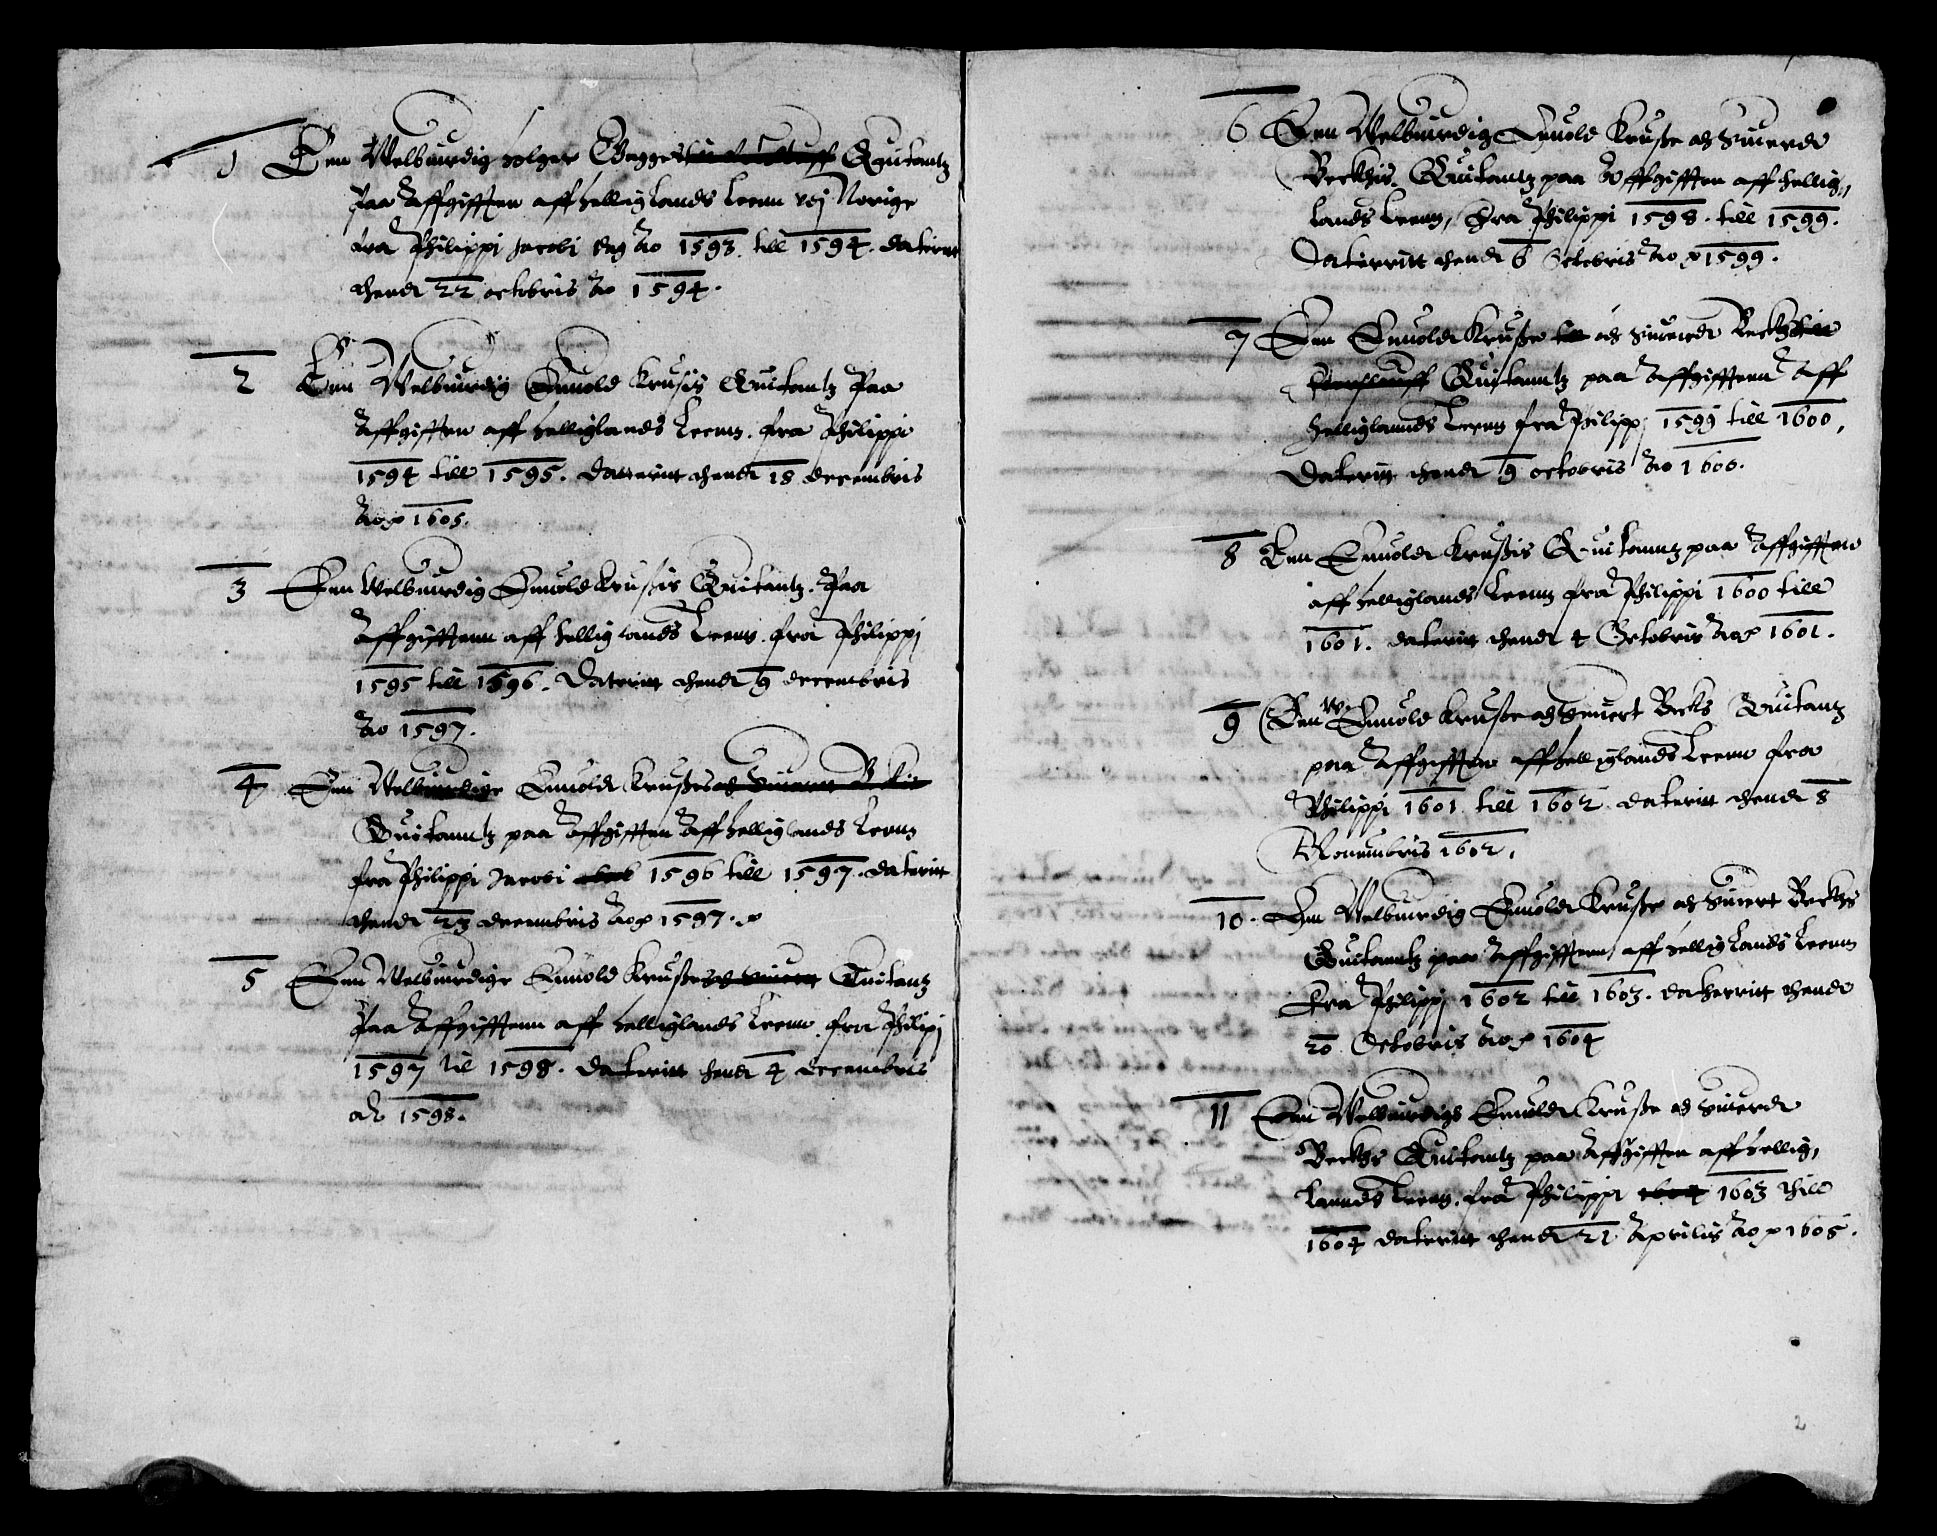 1 Een Welbiurdig Holger Gagges Quitantz
Paa Affgifften aff Helliglands Leenn udj Norige
fra Philippi Jacobi dag Ao 1593. till 1594. daterit
thend 22 octobris Ao 1594.
2 Een Welbiurdig Enuold Krusis Quitantz Paa
Affgifften aff Helliglands Leenn. fra Philippi
1594 till 1595. Daterint thend 18 Decembris
Ao 1605.
3 Een Welbiurdig Enuold Krusis Quitantz. Paa
Affgifftenn aff Helliglands Leenn. fra Philippj
1595 till 1596. Daterint thend 9 decembris
Ao 1597.
4 Een Welbiurdige Enuold Krusses og Siuertt Beckis
Quitanntz paa Affgifften Aff Helliglands Leenn
fra Philippi Jacobi 1596 till 1597. daterint
thend 23 decembris Ao 1597.
5 Een Welbiurdige Enuold Krusses og Siuertt Quitantz
Paa Affgifftenn aff Helliglands Leenn. fra Philipj
1597 til 1598. Daterint thend 4 Decembris
Ao 1598.
6 Een Welbiurdig Enuold Krusse og Siuerdt
Beckhis. Quitantz paa Affgifften aff Hellig,,
lands Leenn, Fra Philippi 1598. till 1599.
Daterritt thend 6 Octobris Ao 1599.
7 Een Enuold Krusse till og Siuerdt Beckhs
Quitanntz paa Affgifftenn Aff
Helliglannds Leenn fra Philippj 1599 till 1600,
Daterint thend 9 octobris Ao 1600.
8 Een Enuold Krussis Quitanntz paa Affgifften
aff Helliglands Leenn fra Philippi 1600 till
1601. daterint thend 4 Octobris Ao 1601.
9 Een W. Enuold Krusse og Siuert Becks Quitantz
paa Affgifften aff Helliglands Leenn fra
Philippi 1601 till 1602. daterint thend 8
Nouembris 1602.
10. Een Welbiurdig Enuold Krusse og Siuert Beckhs
Quitanntz paa Affgifftenn aff Helliglands Leenn
Fra Philippj 1602 till 1603. datherritt thend
20 Octobris Ao 1604
11 Een Welbiurdigs Enuold Krusse og Siuerdt
Beckhs Quitantz paa Affgifften aff Hellig,
lannds Leenn. fra Philippi 1604 1603 thill
1604 daterint thend 21 Aprilis Ao 1605.
2